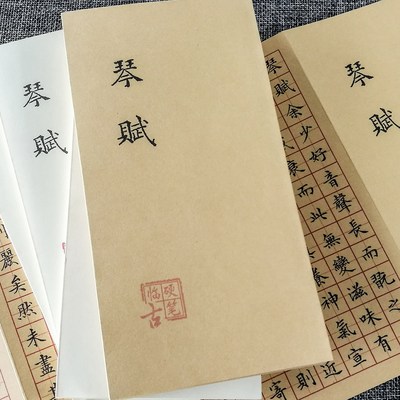 琴賦
琴賦
琴賦
硬笔
临古
琴賦余少好音聲長而翫之
衰而此無變滋味有
養神氣宣
近
則
寄
麗矣然未盡